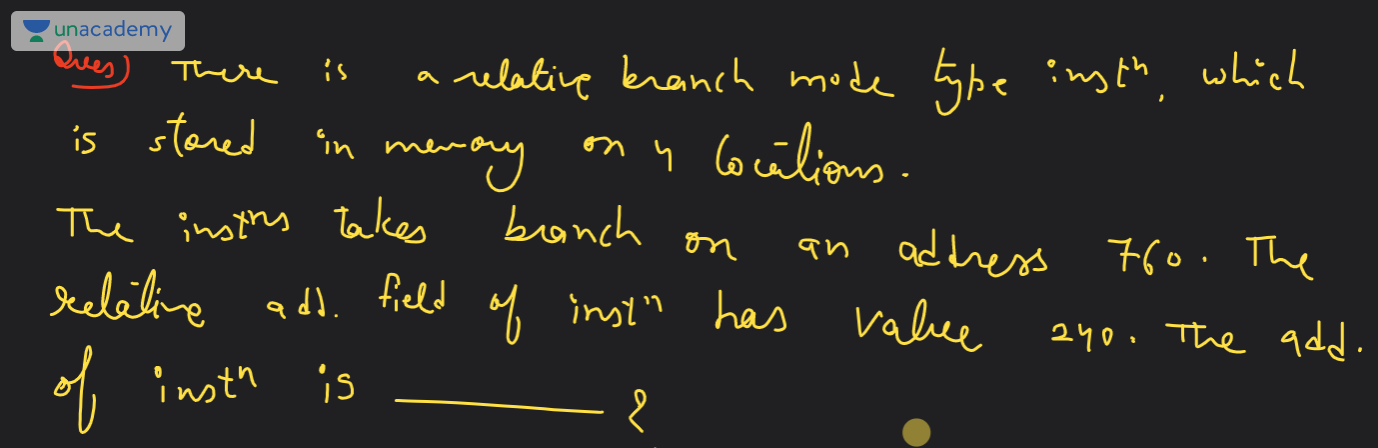 unacademy
Ques) There is a relative branch mode type instⁿ, which
is stored in memory on 4 locations.
The instⁿs takes branch on an address 760. The
relative add. field of instⁿ has value 240. The add.
of instⁿ is ________ ?